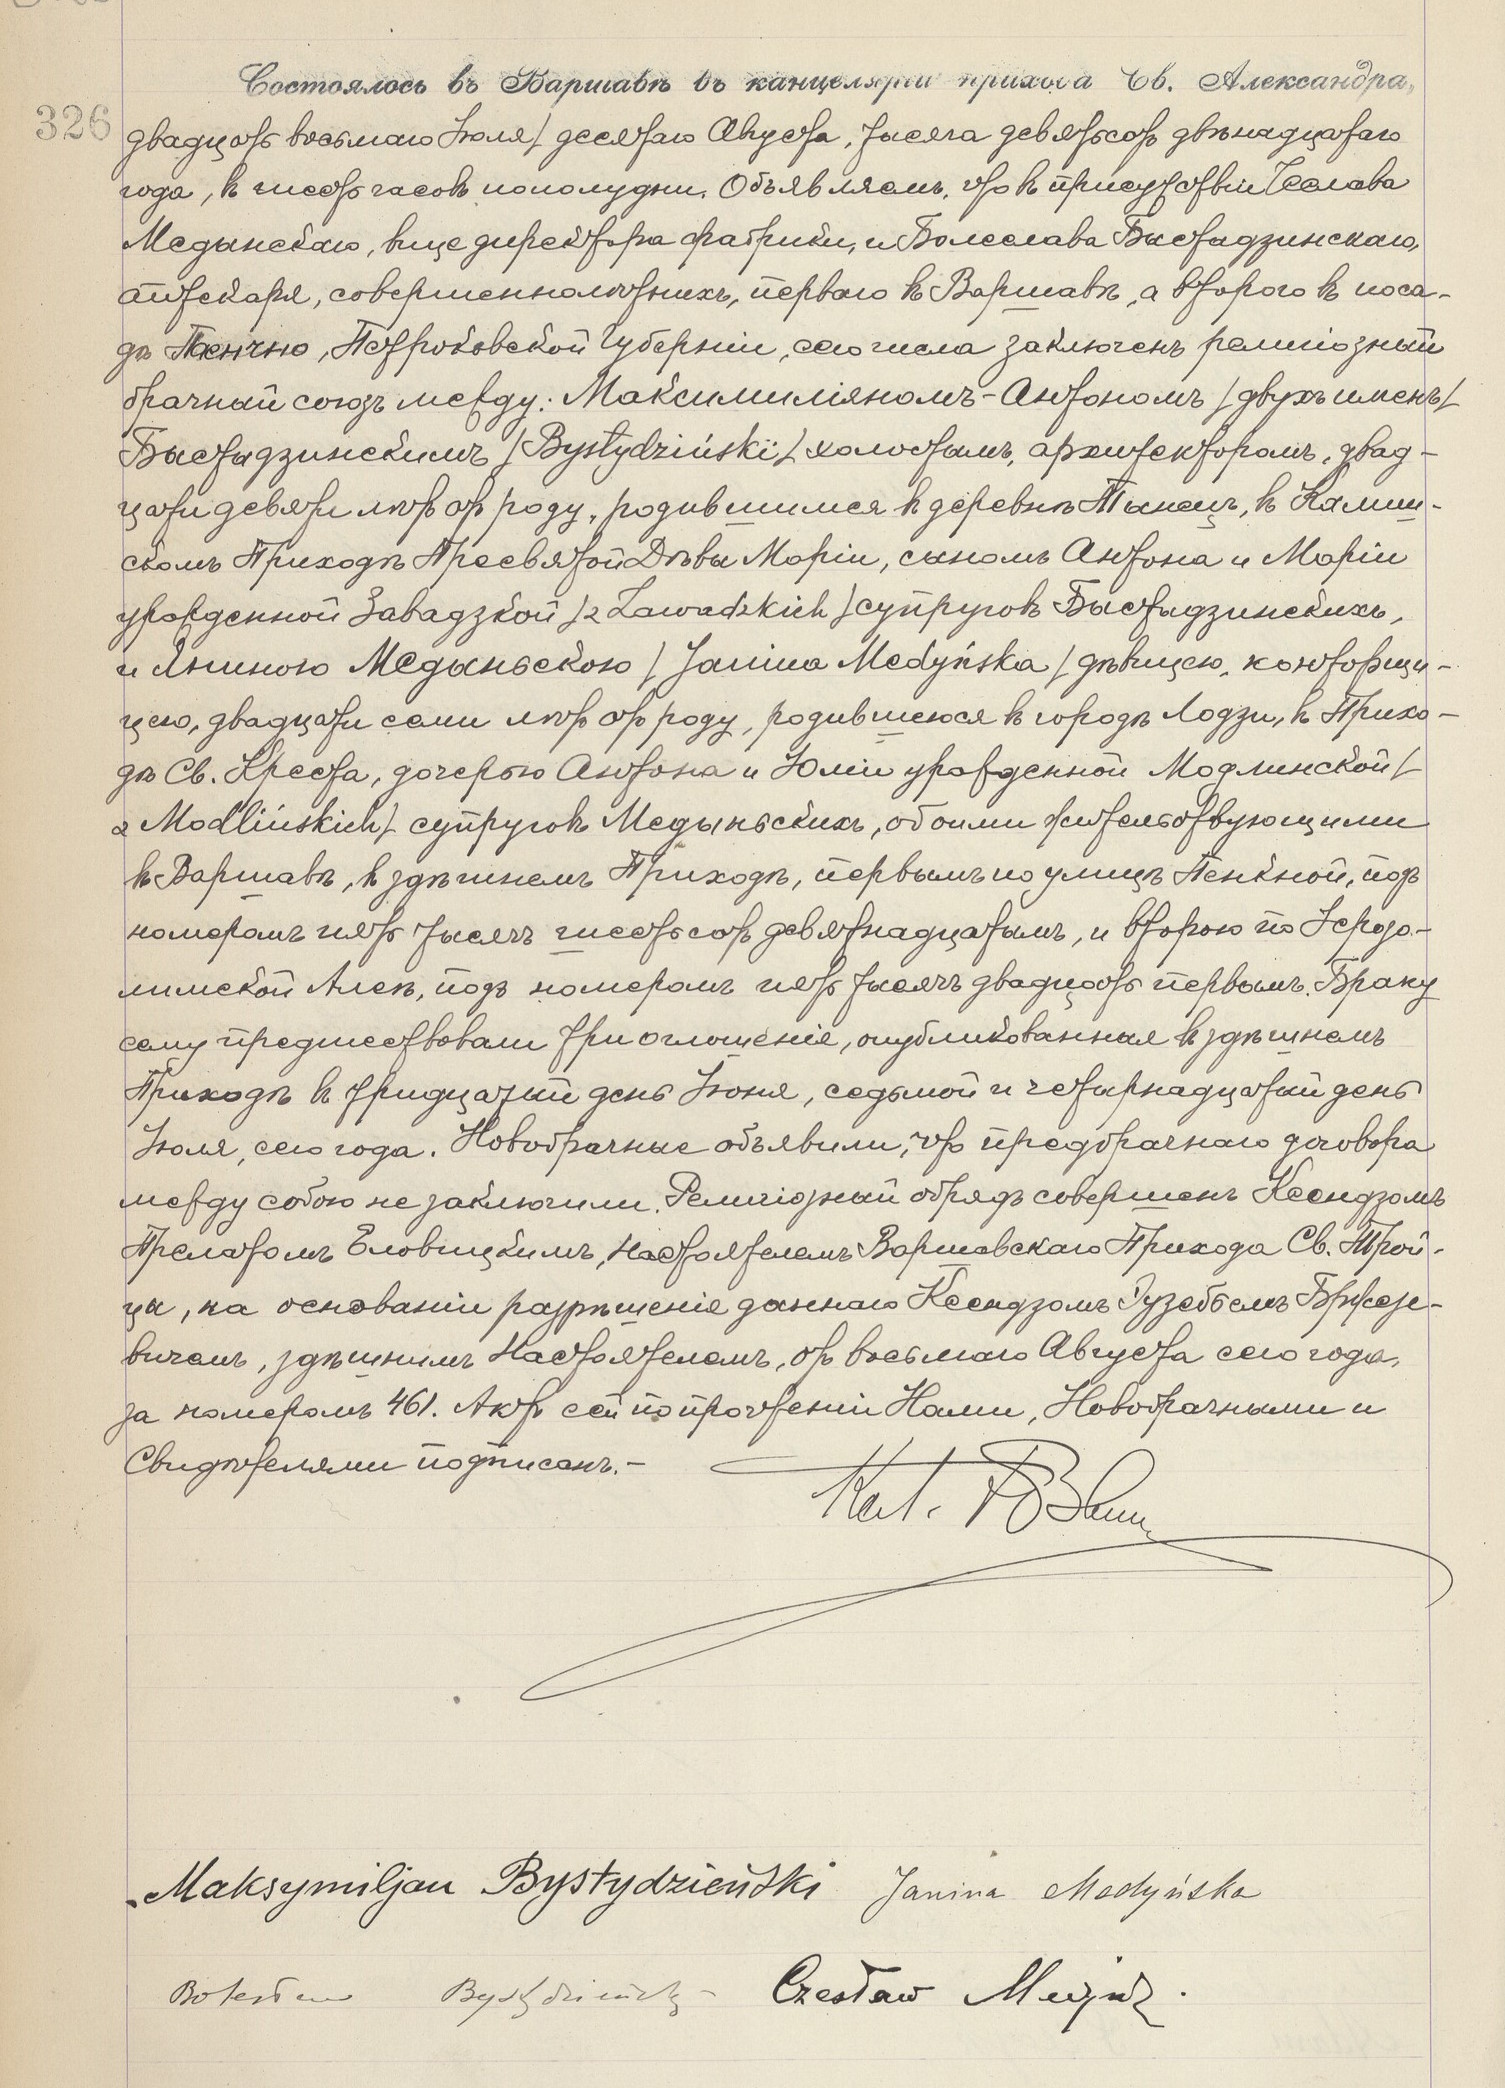 326
Состоялось въ Варшавѣ въ канцелярiи прихода Св. Александра,
двадцать восьмаго Iюля/ десятаго Августа, тысяча девятьсотъ двѣнадцатаго
года, въ шесть часовъ пополудни. Объявляемъ, что въ присутствiи Чеслава
Медынскаго, вице директора фабрики, и Болеслава Быстыдзинскаго,
аптекаря, совершеннолѣтнихъ, перваго въ Варшавѣ, а второго въ поса-
дѣ Пенчно, Петроковской Губернiи, сего числа заключенъ религiозный
брачный союзъ между: Максимилiяномъ-Антономъ /двухъ именъ/
Быстыдзинскимъ /Bystydziński/ холостымъ, архитекторомъ, двад-
цати девяти лѣтъ отъ роду, родившимся въ деревнѣ Тынецъ, въ Калиш-
скомъ Приходѣ Пресвятой Дѣвы Марiи, сыномъ Антона и Марiи
урожденной Завадзкой /z Zawadzkich/ супруговъ Быстыдзинскихъ,
и Яниною Медыньскою /Janina Medyńska/ дѣвицею, конторщи-
цею, двадцати семи лѣтъ отъ роду, родившеюся въ городѣ Лодзи, въ Прихо-
дѣ Св. Креста, дочерью Антона и Юлiи урожденной Модлинской/
z Modlińskich/ супруговъ Медыньскихъ, обоими жительствующими
въ Варшавѣ, въ здѣшнемъ Приходѣ, первымъ по улицѣ Пенкной, подъ
номеромъ пять тысячъ шестьсотъ девятнадцатымъ, и второю по Iерозо-
лимской Алеѣ, подъ номеромъ пять тысячъ двадцать первымъ. Браку
сему предшествовали три оглашенiя, опубликованныя въ здѣшнемъ
Приходѣ въ тридцатый день Iюня, седьмой и четырнадцатый день
Iюля, сего года. Новобрачные объявили, что предбрачнаго договора
между собою не заключили. Религiозный обрядъ совершенъ Ксендзомъ
Прелатомъ Еловицкимъ, Настоятелемъ Варшавскаго Прихода Св. Трой-
цы, на основанiи разрѣшенiя даннаго Ксендзомъ Гузебьемъ Бржезе-
вичемъ, здѣшнимъ Настоятелемъ, отъ восьмаго Августа сего года,
за номеромъ 461. Актъ сей по прочтенiи Нами, Новобрачными и
Свидѣтелями подписанъ.-
Maksymiljan Bystydzieński Janina Medyńska
Bolesław Bystydzieński Czesław